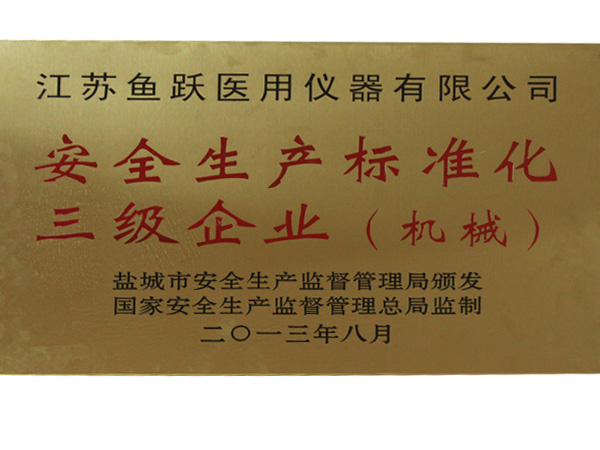 江苏鱼跃医用仪器有限公司
安全生产标准化
三级企业（机械）
盐城市安全生产监督管理局颁发
国家安全生产监督管理总局监制
二〇一三年八月